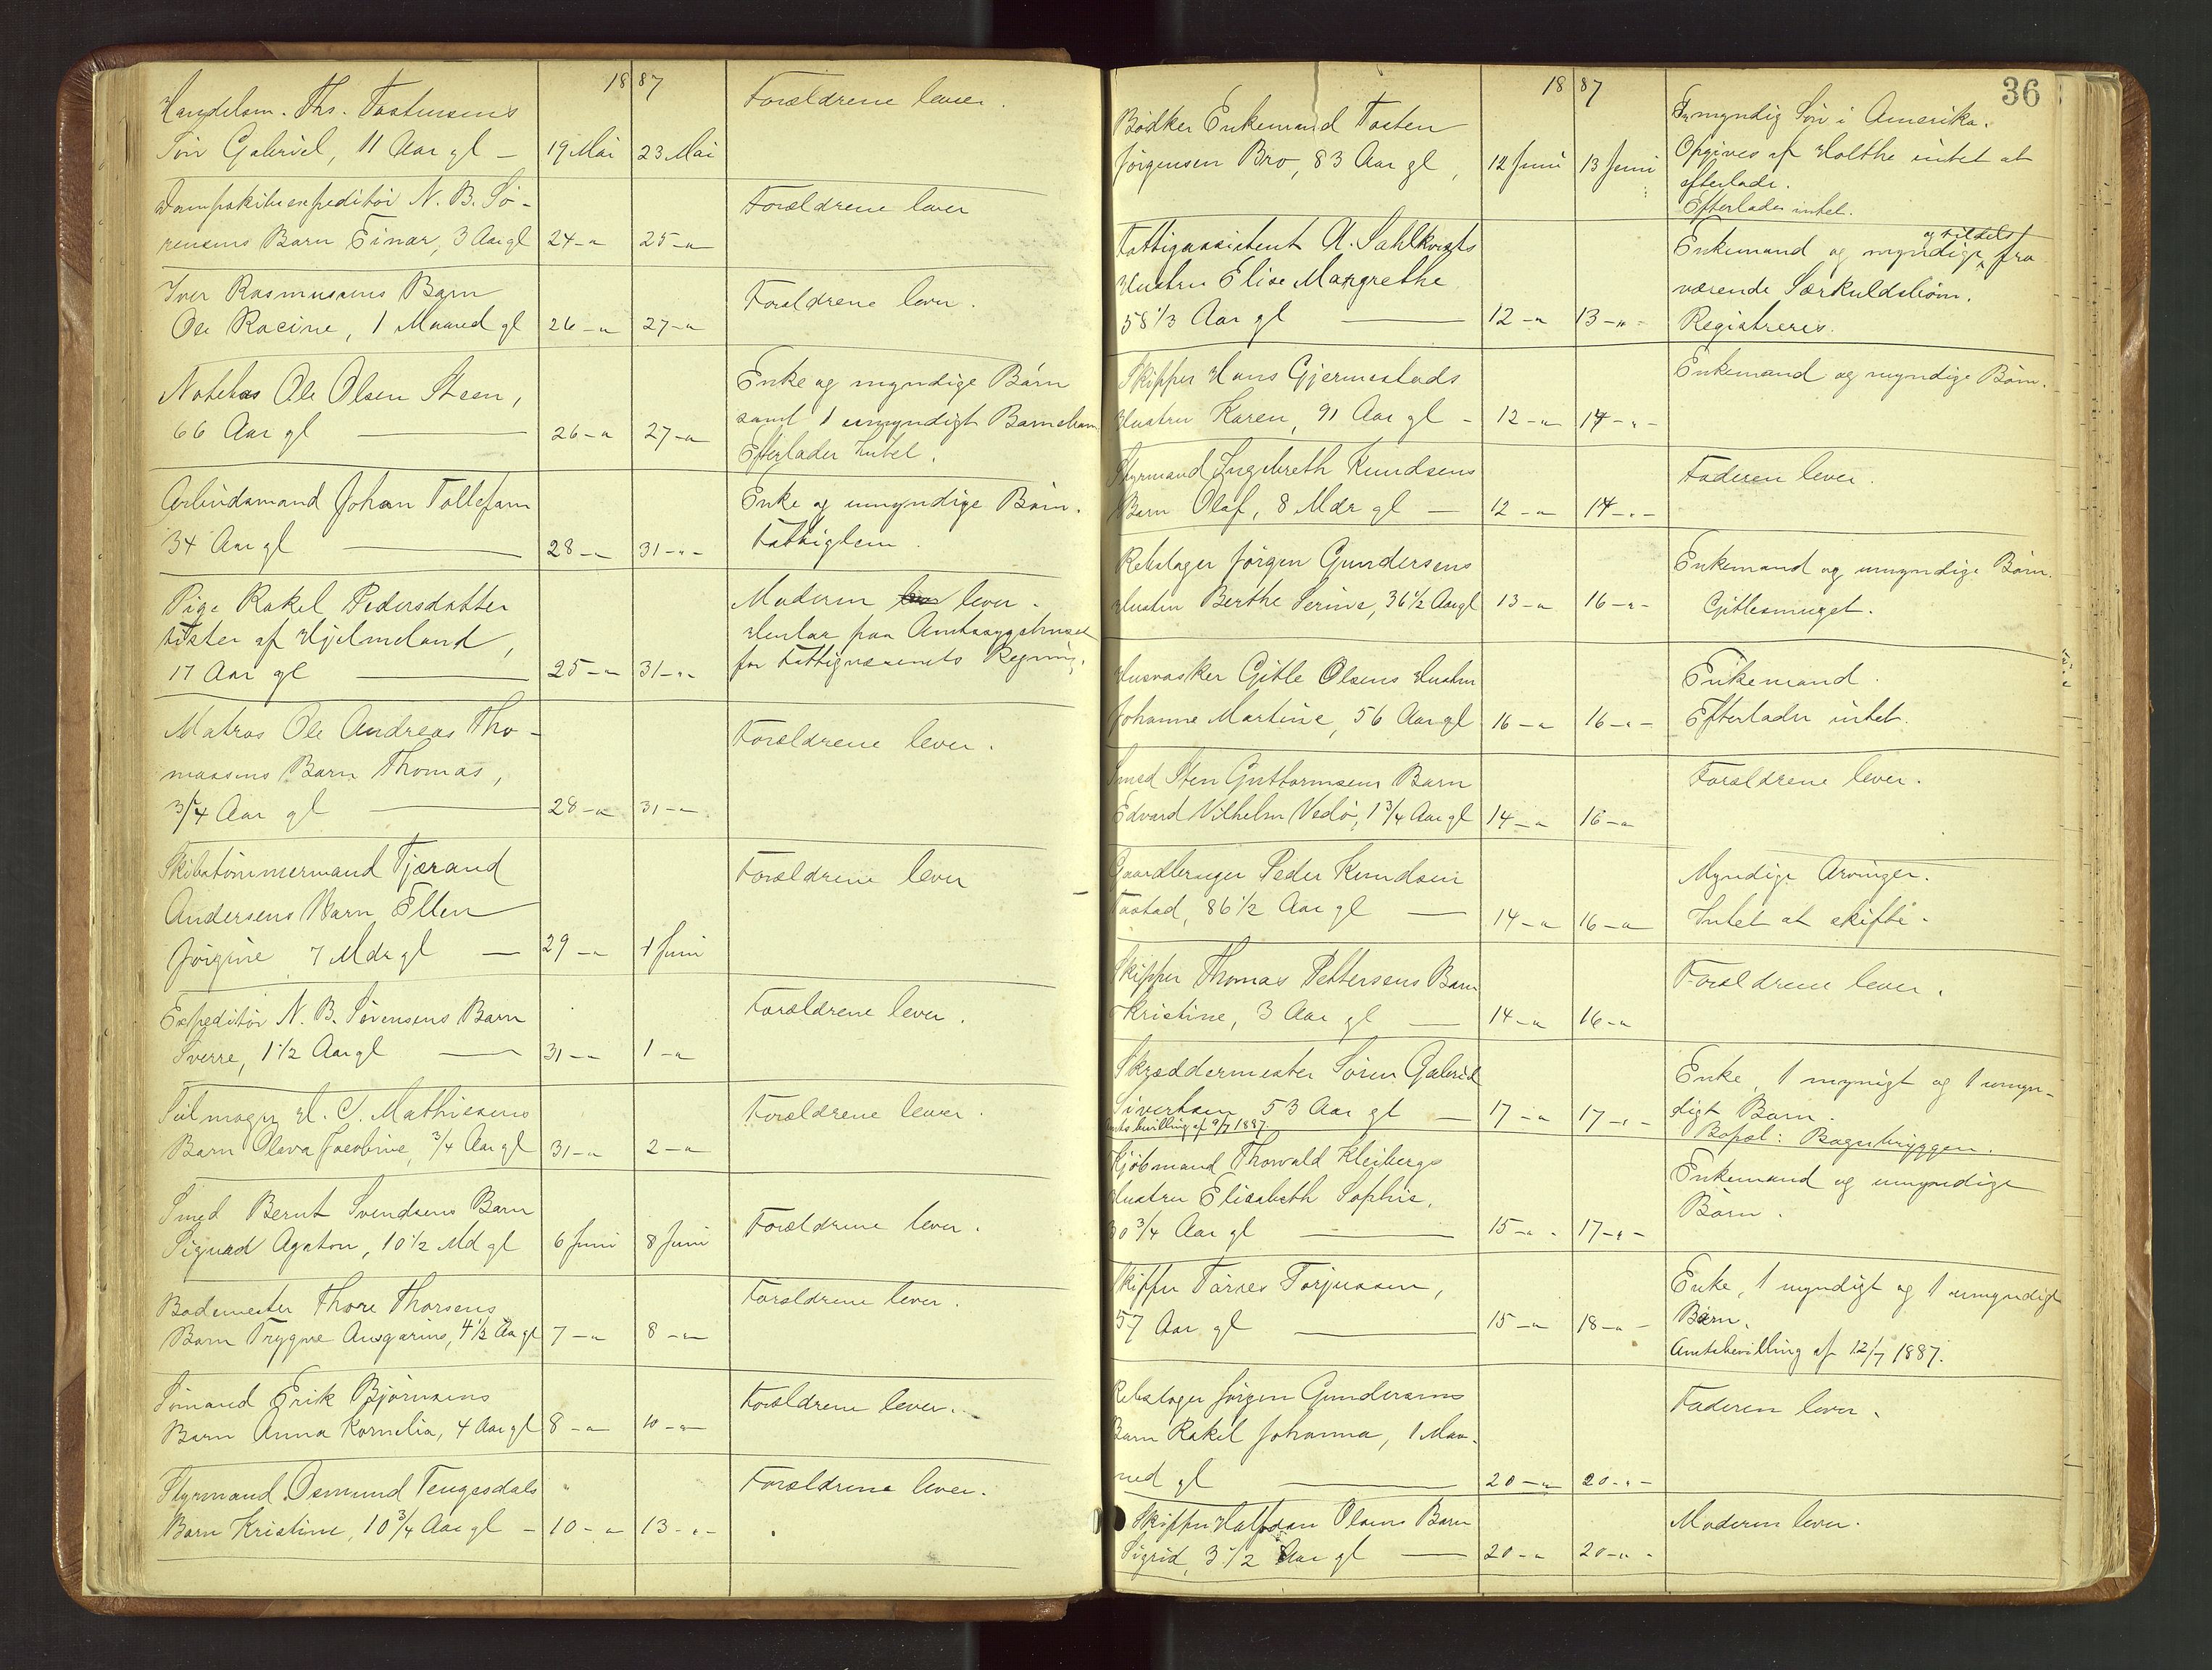 18 87
Handelsm. Ths. Tostensens
Søn Gabriel, 11 Aar gl — 19 Mai 23 Mai Forældrene lever.
Dampskibsexpeditør N. B. Sø-
rensens Barn Einar, 3 Aar gl 24 -"- 25 -"- Forældrene lever
Iver Rasmussens Barn
Ole Racine, 1 Maaned gl 26 -"- 27 -"- Forældrene lever.
Notebas Ole Olsen Steen,
66 Aar gl — 26 -"- 27 -"- Enke og myndige Børn
samt 1 umyndigt Barnebarn.
Efterlader Intet.
Arbeidsmand Johan Tollefsen
34 Aar gl — 28 -"- 31 -"- Enke og umyndige Børn.
Fattiglem
Pige Rakel Pedersdatter
Vister af Hjelmeland,
17 Aar gl — 25 -"- 31 -"- Moderen lever.
Hentar paa Amtssygehuset
for Fattigvæsenets Regning.
Matros Ole Andreas Tho-
massens Barn Thomas,
3/4 Aar gl — 28 -"- 31 -"- Forældrene lever.
Skibstømmermand Tjærand
Andersens Barn Ellen
Jørgine 7 Mdr gl — 29 -"- 1 Juni Forældrene lever
Expeditør N. B. Sørensens Barn
Sverre, 1 1/2 Aar gl — 31 -"- 1 -"- Forældrene lever.
Seilmager H. C. Mathiesens
Barn Olava Jacobine, 3/4 Aar gl 31 -"- 2 -"- Forældrene lever.
Smed Bernt Svendsens Barn
Sigurd Agaton, 10 1/2 Md gl 6 Juni 8 Juni Forældrene lever.
Bademester Thore Thorsens
Barn Trygve Ansgarius, 4 1/2 Aar gl 7 -"- 8 -"- Forældrene lever.
Sømand Erik Bjørnsens
Barn Anna Kornelia, 4 Aar gl 8 -"- 10 -"- Forældrene lever.
Styrmand Osmund Tengesdals
Barn Kristine, 10 3/4 Aar gl — 10 -"- 13 -"- Forældrene lever.
36
18 87
Bødker Enkemand Tosten
Jörgensen Bro, 83 Aar gl, 12 Juni 13 Juni En myndig Søn i Amerika.
Opgives af Holthe intet at
efterlade.
Efterlader intet.
Fattigassistent A. Sahlkvists
Hustru Elise Margrethe
58 1/3 Aar gl — 12 -"- 13 -"- Enkemand og myndige og tildels fra
værende Særkuldsbørn.
Registreres.
Skipper Hans Gjermestads
Hustru Karen, 91 Aar gl - 12 -"- 14 -"- Enkemand og myndige Børn.
Styrmand Ingebreth Knudsens
Barn Olaf, 8 Mdr gl — 12 -"- 14 -"- Faderen lever.
Rebslager Jörgen Gundersens
Hustru Berthe Serine, 36 1/2 Aar gl 13 -"- 16 -"- Enkemand og umyndige Børn.
Gitlesmuget.
Husvasker Gitle Olsens Hustru
Johanne Martine, 56 Aar gl 16 -"- 16 -"- Enkemand.
Efterlader intet.
Smed Sten Guttormsens Barn
Edvard Vilhelm Vedø, 1 3/4 Aar gl 14 -"- 16 -"- Forældrene lever.
Gaardbruger Peder Knudsen
Tastad, 86 1/2 Aar gl — 14 -"- 16 -"- Myndige Arvinger.
Intet at skifte.
Skipper Thomas Pettersens Barn
Kristine, 3 Aar gl — 14 -"- 16 -"- Forældrene lever.
Skræddermester Sören Gabriel
Sivertsen 53 Aar gl — 17 -"- 17 -"- Enke, 1 mynigt og 1 umyn-
digt Barn.
Bopæl: Bagerbryggen.
Amtsbevilling af 9/7 1887.
Kjøbmand Thorvald Kleibergs
Hustru Elisabeth Sophie,
30 3/4 Aar gl — 15 -"- 17 -"- Enkemand og umyndige
Børn.
Skipper Tørres Torjussen,
57 Aar gl — 15 -"- 18 -"- Enke, 1 myndigt og 1 umyndigt
Barn.
Amtsbevilling af 12/7 1887.
Rebslager Jörgen Gundersens
Barn Rakel Johanna, 1 Maa-
ned gl — 20 -"- 20 -"- Faderen lever.
Skipper Halfdan Olsens Barn
Sigrid, 3 1/2 Aar gl — 20 -"- 20 -"- Moderen lever.